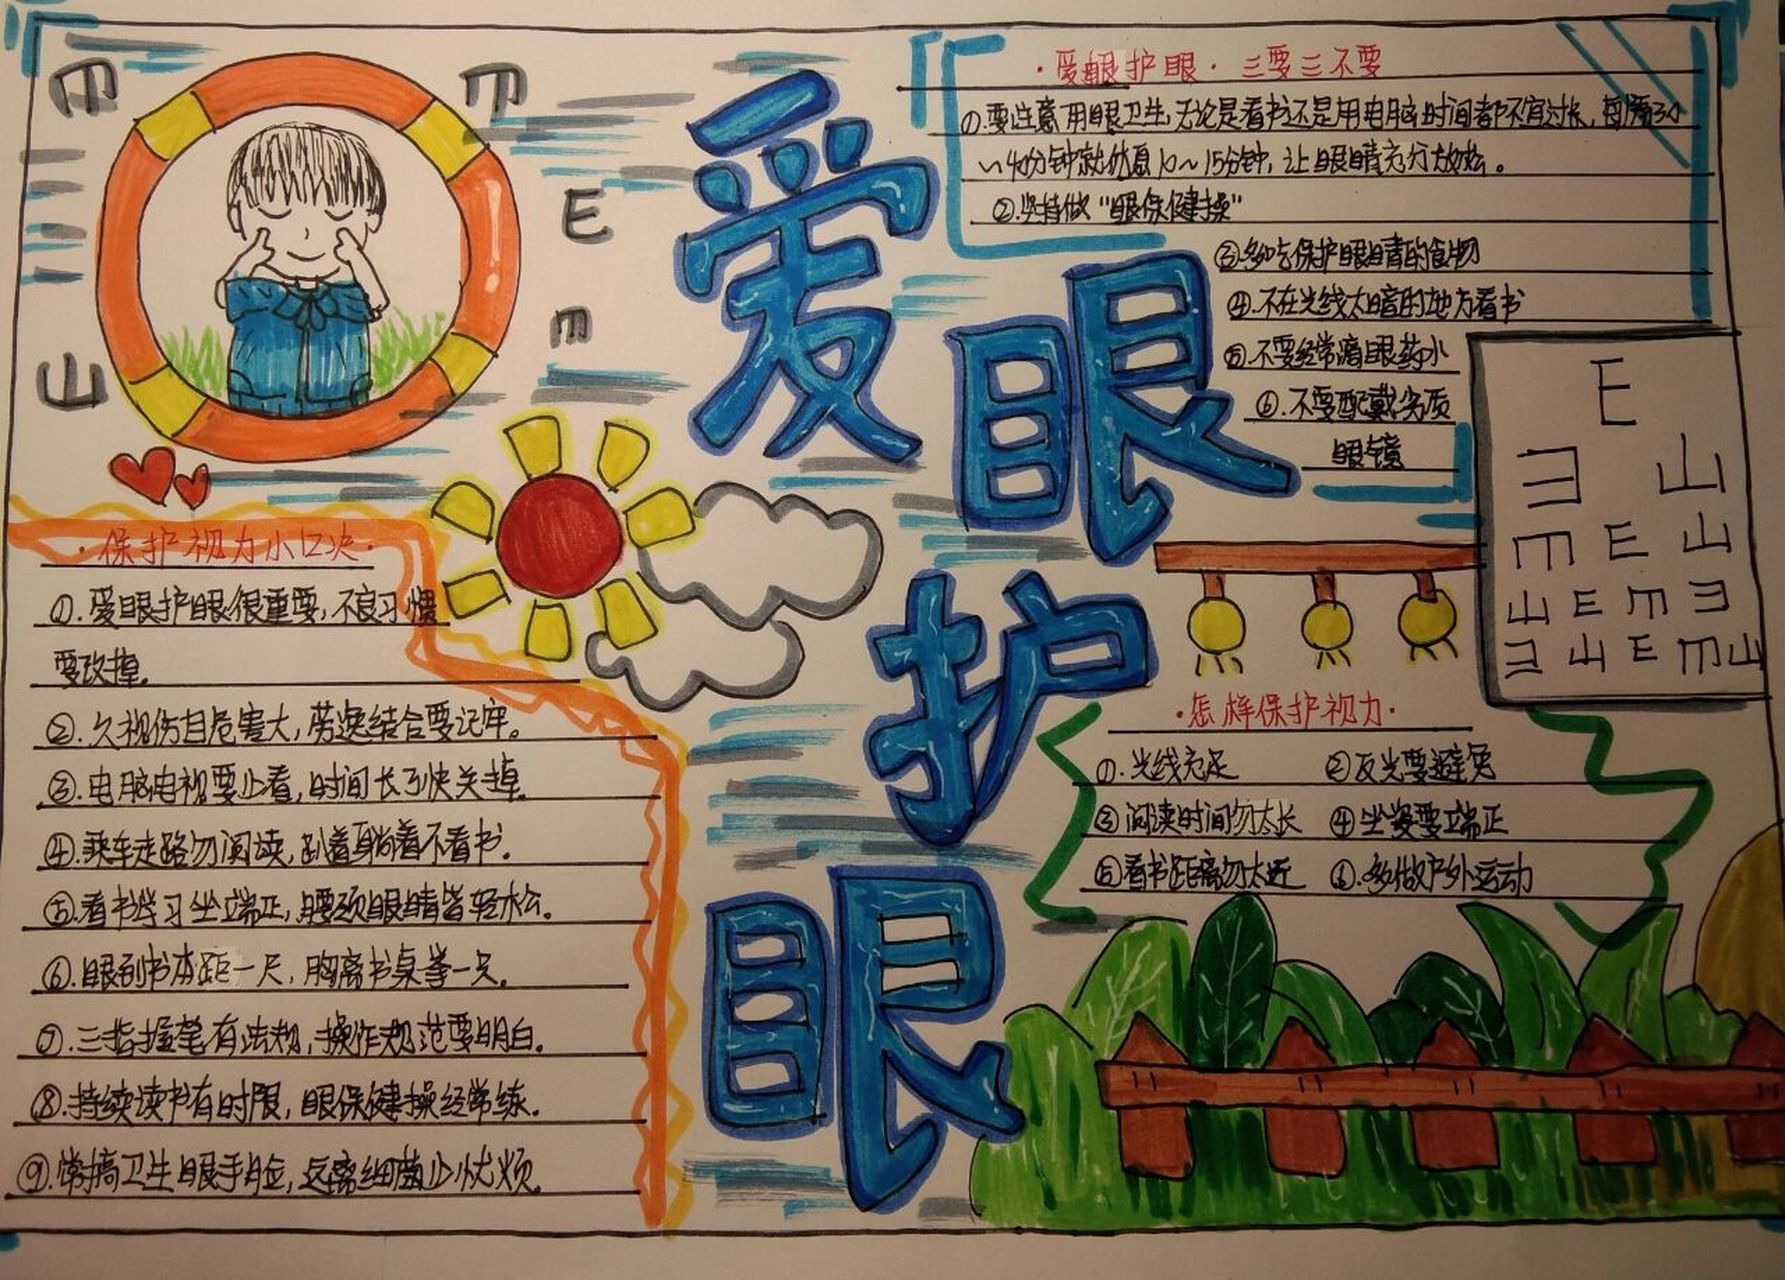 爱眼护眼
·爱眼护眼·三要三不要
①.要注意用眼卫生,无论是看书还是用电脑时间都不宜过长,每隔30
~40分钟就休息10~15分钟,让眼睛充分放松。
②.坚持做"眼保健操"
③多吃保护眼睛的食物
④.不在光线太暗的地方看书
⑤.不要经常滴眼药水
⑥.不要配戴劣质
眼镜
·保护视力小口决·
①.爱眼护眼很重要,不良习惯
要改掉。
②.久视伤目危害大,劳逸结合要记牢。
③.电脑电视要少看,时间长了快关掉。
④.乘车走路勿阅读,趴着躺着不看书。
⑤.看书学习坐端正,腰颈眼睛皆轻松。
⑥.眼到书本距一尺,胸离书桌等一尺。
⑦.三指握笔有法规,操作规范要明白。
⑧.持续读书有时限,眼保健操经常练。
⑨.常搞卫生眼手脸,远离细菌少忧烦。
·怎样保护视力·
①.光线充足 ②反光要避免
③阅读时间勿太长 ④坐姿要端正
⑤看书距离勿太近 ⑥.多做户外运动
E
E
E
E E
E E E
E E E E
E E E E E